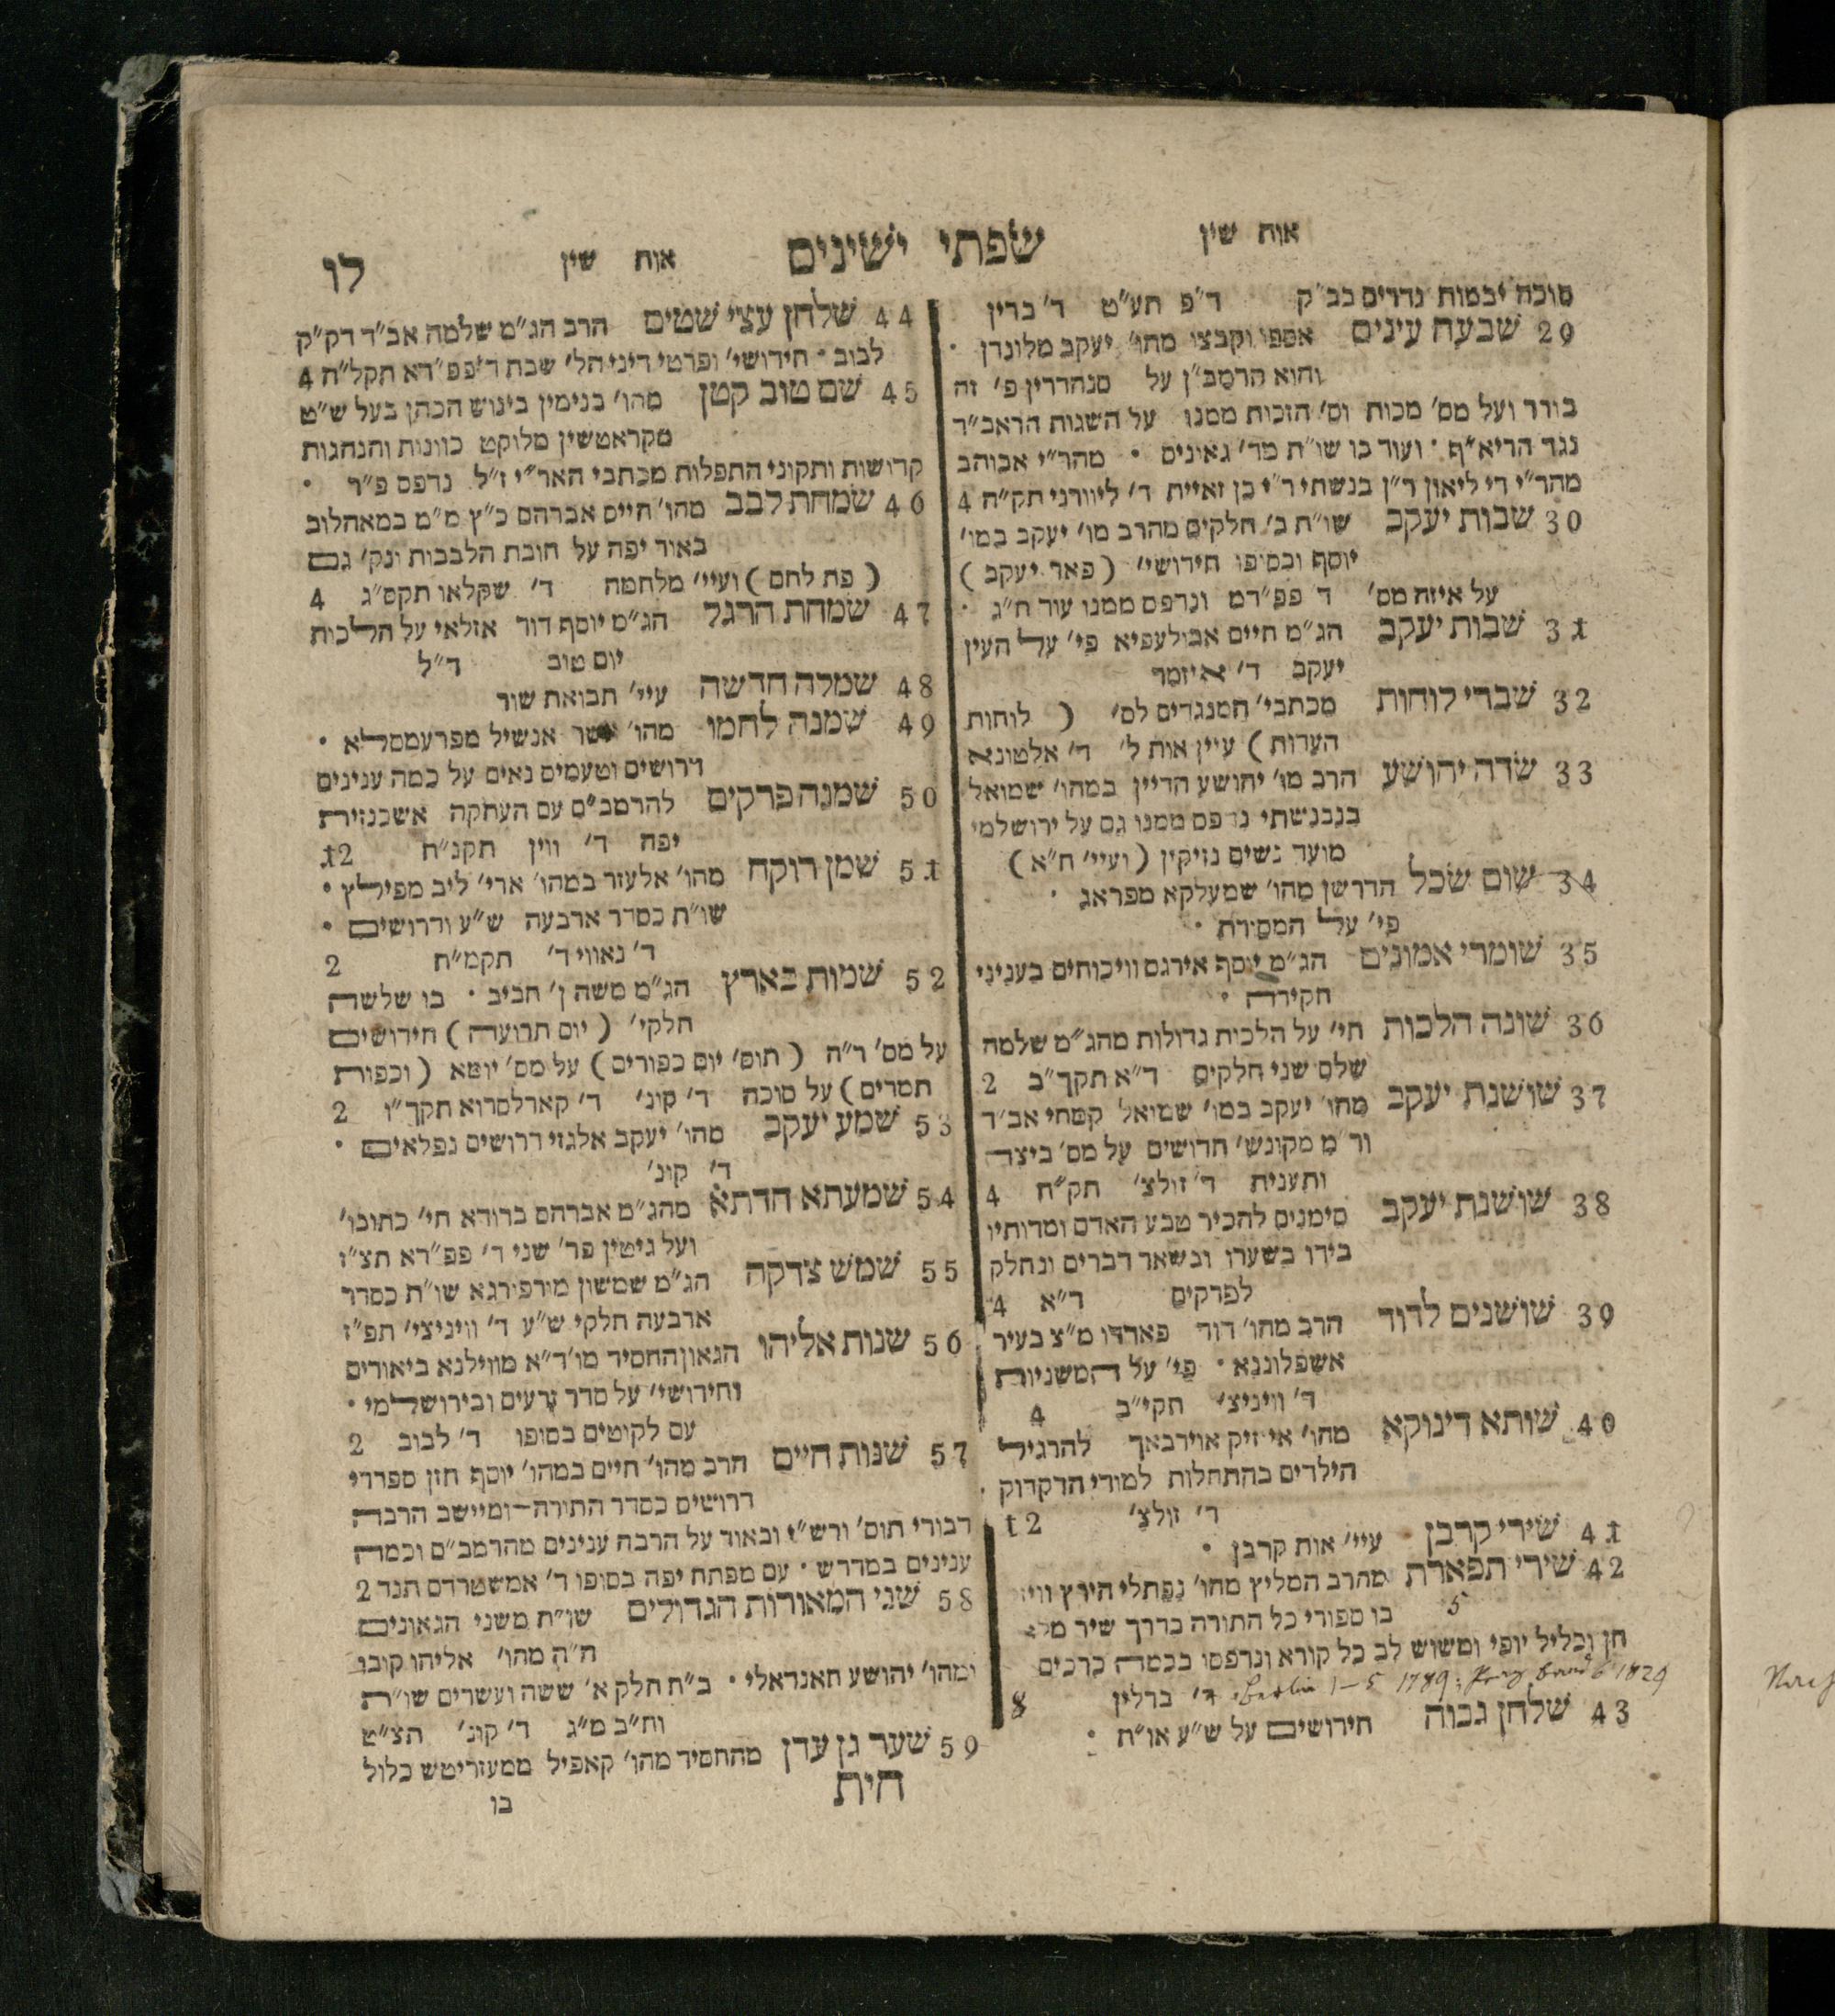 אות שין
שפתי ישינים
אות שין
לו
סוכה יבמות נדרים בב״ק ד״פ תע״ט ד׳ ברין
29 שבעה עינים אספו וקבצו מהו׳ יעקב מלונדן •
והוא הרמב״ן על סנהדרין פ׳ זה
בורר ועל מס׳ מכות וס׳ הזכות ממנו על השגות הראב״ד
נגד הריא״ף • ועוד בו שו״ת מד׳ גאונים • מהר״י אבוהב
מהר״י די ליאון ר״ן בנשתי ר״י בן זאיית ד׳ ליוורני תק״ח 4
30 שבות יעקב שו״ת ב׳ חלקים מהרב מו׳ יעקב במו׳
יוסף ובסופו חידושי׳ (פאר יעקב)
על איזה מס׳ ד פפ״דמ ונדפס ממנו עוד ח״ג •
31 שבות יעקב הג״מ חיים אבולעפיא פי׳ על העין
יעקב ד׳ איזמר
32 שברי לוחות מכתבי׳ המנגדים לס׳ ( לוחות
העדות) עיין אות ל׳ ד׳ אלטונא
33 שדה יהושע הרב מו׳ יהושע הדיין במהו׳ שמואל
בנבנשתי נדפס ממנו גם על ירושלמי
מועד נשים נזיקין (ועיי׳ ח״א)
34 שום שכל הדרשן מהו׳ שמעלקא מפראג •
פי׳ על המסירת •
35 שומרי אמונים הג״מ יוסף אירגס וויכוחים בעניני
חקירה •
36 שונה הלכות חי׳ על הלכות גדולות מהג״מ שלמה
שלם שני חלקים ד״א תקך״ב 2
37 שושנת יעקב מהו׳ יעקב במו׳ שמואל קמחי אב״ד
ור״מ מקונש׳ חדושים על מס׳ ביצה
ותענית ד׳ זולצ׳ תק״ח 4
38 שושנת יעקב סימנים להכיר טבע האדם ומדותיו
בידו בשערו ובשאר דברים ונחלק
לפרקים ד״א 4
39 שושנים לדוד הרב מהו׳ דוד פארדו מ״צ בעיר
אשפלוננא • פי׳ על המשניות
ד׳ וויניצי׳ תקי״ב 4
40 שותא דינוקא מהו׳ אייזיק אוירבאך להרגיל
הילדים בהתחלות למודי הדקדוק •
ד׳ זולצ׳ 12
41 שירי קרבן עיי׳ אות קרבן •
42 שירי תפארת מהרב המליץ מהו׳ נפתלי הירץ
בו ספורי כל התורה בדרך שיר מלא
5
חן וכליל יופי ומשוש לב כל קורא ונדפסו בכמה כרכים
ד׳ ברלין 8
Berlin 1–5 1789; 6 1829
43 שלחן גבוה חידושים על ש״ע או״ח •
44 שלחן עצי שטים הרב הג״מ שלמה אב״ד דק״ק
לבוב • חידושי׳ ופרטי דיני הל׳ שבת ד׳ פפ״דא תקל״ח 4
45 שם טוב קטן מהו׳ בנימין בינוש הכהן בעל ש״ט
מקראטשין מלוקט כוונות והנהגות
קדושות ותקוני התפלות מכתבי האר״י ז״ל נדפס פ״ר •
46 שמחת לבב מהו׳ חיים אברהם כ״ץ מ״מ במאהלוב
באור יפה על חובת הלבבות ונק׳ גם
(פת לחם) ועיי׳ מלחמה ד׳ שקלאו תקס״ג 4
47 שמחת הרגל הג״מ יוסף דוד אזלאי על הלכות
יום טוב ד״ל
48 שמלה חדשה עיי׳ תבואת שור
49 שמנה לחמו מהו׳ אשר אנשיל מפרעמסלא •
דרושים וטעמים נאים על כמה ענינים
50 שמנה פרקים להרמב״ם עם העתקה אשכנזית
יפה ד׳ ווין תקנ״ח 12
51 שמן רוקח מהו׳ אלעזר במהו׳ ארי׳ ליב מפילץ •
שו״ת כסדר ארבעה ש״ע ודרושים •
ד׳ נאווי ד׳ תקמ״ח 2
52 שמות בארץ הג״מ משה ן׳ חביב • בו שלשה
חלקי׳ (יום תרועה) חידושים
על מס׳ ר״ה (תוס׳ יום כפורים) על מס׳ יומא (וכפות
תמרים) על סוכה ד׳ קונ׳ ד׳ קארלסרוא תקך״ו 2
53 שמע יעקב מהו׳ יעקב אלגזי דרושים נפלאים •
ד׳ קונ׳
54 שמעתא חדתא מהג״מ אברהם ברודא חי׳ כתובו׳
ועל גיטין פר׳ שני ד׳ פפ״דא תצ״ז
55 שמש צדקה הג״מ שמשון מורפורגא שו״ת כסדר
ארבעה חלקי ש״ע ד׳ וויניצי׳ תפ״ז
56 שנות אליהו הגאון החסיד מו׳ ד״א מווילנא ביאורים
וחידושי׳ על סדר זרעים ובירושלמי •
עם לקוטים בסופו ד׳ לבוב 2
57 שנות חיים הרב מהו׳ חיים במהו׳ יוסף חזן ספרדי
דרושים כסדר התורה ומיישב הרבה
דבורי תוס׳ ורש״י ובאוד על הרבה ענינים מהרמב״ם וכמה
ענינים במדרש • עם מפתח יפה בסופו ד׳ אמשטרדם תנד 2
58 שני המאורות הגדולים שו״ת משני הגאונים
ה״ה מהו׳ אליהו קובו
ומהו׳ יהושע האנדראלי • ב״ח חלק א׳ ששה ועשרים שו״ת
וח״ב מ״ג ד׳ קונ׳ תצ״ט
59 שער גן עדן מהחסיד מהו׳ קאפיל ממעזריטש כלול
חית
בו